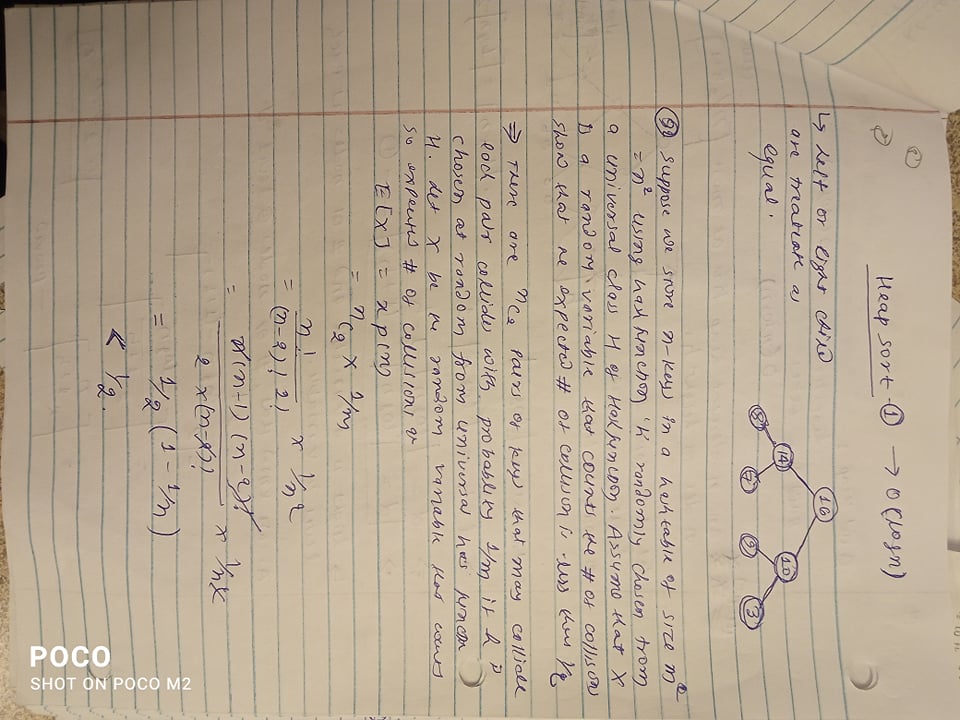 Heap sort - ① → O(logn)
↳ Left or right child
are treateate as
equal.
16
14 10
8 7 9 3
Q1 Suppose we store n-keys in a hashtable of size m
= n² using hash function 'h' randomly chosen from
a universal class H of Hashfunction. Assume that X
is a random variable that counts the # of collision
show that the expected # of collision is less than 1/2
⇒ There are nC2 pairs of keys that may collide
each pair collide with probablity 1/m if h is
chosen at random from universal has function
H. Let X be the random variable that counts
so expected # of collisions
E[X] = x p(n)
= nC2 × 1/m
= n! / (n-2)! 2! × 1/n2
= n(n-1) (n-2)! / 2 × (n-2)! × 1/n2
= 1/2 (1 - 1/n)
< 1/2.
POCO
SHOT ON POCO M2